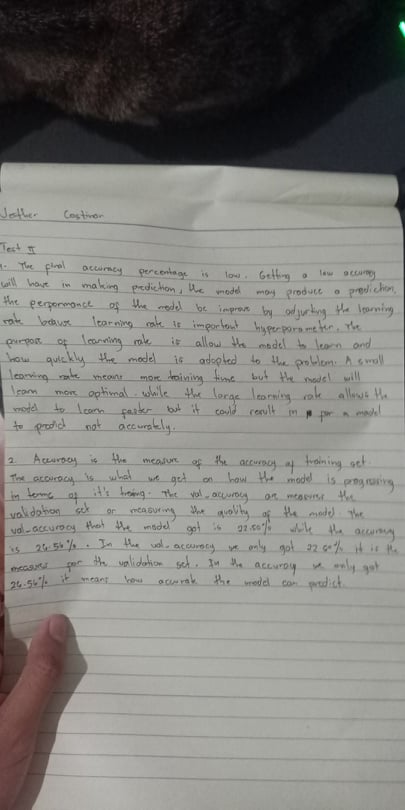 Jesther Castinor
Test II
1. The final accuracy percentage is low. Getting a low accuracy
will have in making prediction, the model may produce a prediction,
the performance of the model be improve by adjusting the learning
rate because learning rate is important hyperparameter. The
purpose of learning rate is allow the model to learn and
how quickly the model is adopted to the problem. A small
learning rate means more training time but the model will
learn more optimal. while the large learning rate allows the
model to learn faster but it could result in for a model
to predict not accurately.
2. Accuracy is the measure of the accuracy of training set.
The accuracy is what we get on how the model is progressing
in terms of it's traing. The val_accuracy are measures the
validation set or measuring the quality of the model. The
val_accuracy that the model got is 22.50% while the accuracy
is 26.56%. In the val_accuracy we only got 22.50% it is the
measures for the validation set. In the accuracy we only got
26.56% it means how accurate the model can predict.